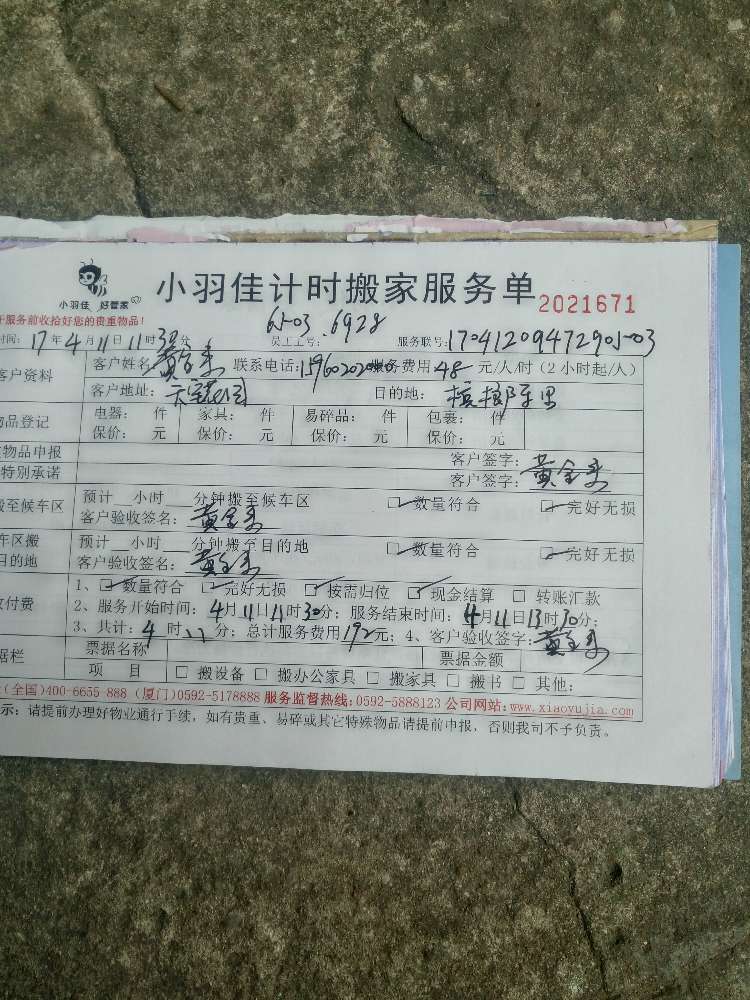 小羽佳 好管家
小羽佳计时搬家服务单 2021671
服务前收拾好您的贵重物品！
时间：17年4月11日11时30分 员工工号：6503.6928 服务联号：
客户资料 客户姓名： 联系电话： 服务费用48元/人/时（2小时起/人）
客户地址：天宝花园 目的地：槟榔西里
物品登记 电器： 件 家具： 件 易碎品： 件 包裹： 件
保价： 元 保价： 元 保价： 元 保价： 元
物品申报 客户签字：黄金来
特别承诺 客户签字：
搬至候车区 预计 小时 分钟搬至候车区 数量符合 完好无损
客户验收签名：黄金来
车区搬 预计 小时 分钟搬至目的地 数量符合 完好无损
目的地 客户验收签名：黄金来
付费 1、数量符合 完好无损 按需归位 现金结算 转账汇款
2、服务开始时间：4月11日11时30分；服务结束时间：4月11日13时30分；
3、共计：4时 分；总计服务费用192元；4、客户验收签字：黄金来
据栏 票据名称 票据金额
项 目 搬设备 搬办公家具 搬家具 搬书 其他：
(全国)400-6655 888 (厦门)0592-5178888 服务监督热线：0592-5888123 公司网站：www.xiaoyujia.com
示：请提前办理好物业通行手续，如有贵重、易碎或其它特殊物品请提前申报，否则我司不予负责。